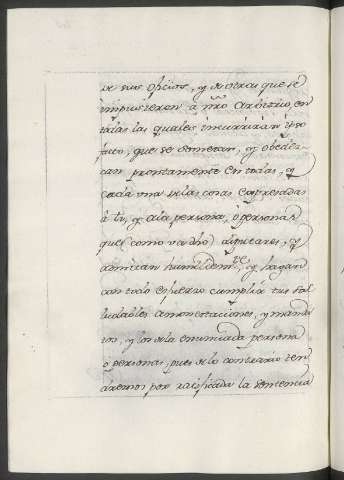 de sus oficios, y de otras que se
impusieren a nr̃o arbitrio, en
todas las quales incurriràn ipso
facto, que se sometan, y obedez-
can prontamente en todas, y
cada una de las cosas expresadas
à ti, y a la persona, ò personas
que (como va dho) diputares, y
admitan humildemte. y hagan
con todo esfuerzo cumplir tus sal
ludables amonestaciones, y manda
tos, y los de la enunciada persona
ò personas, pues de lo contrario ten
dremos por ratificada la sentencia